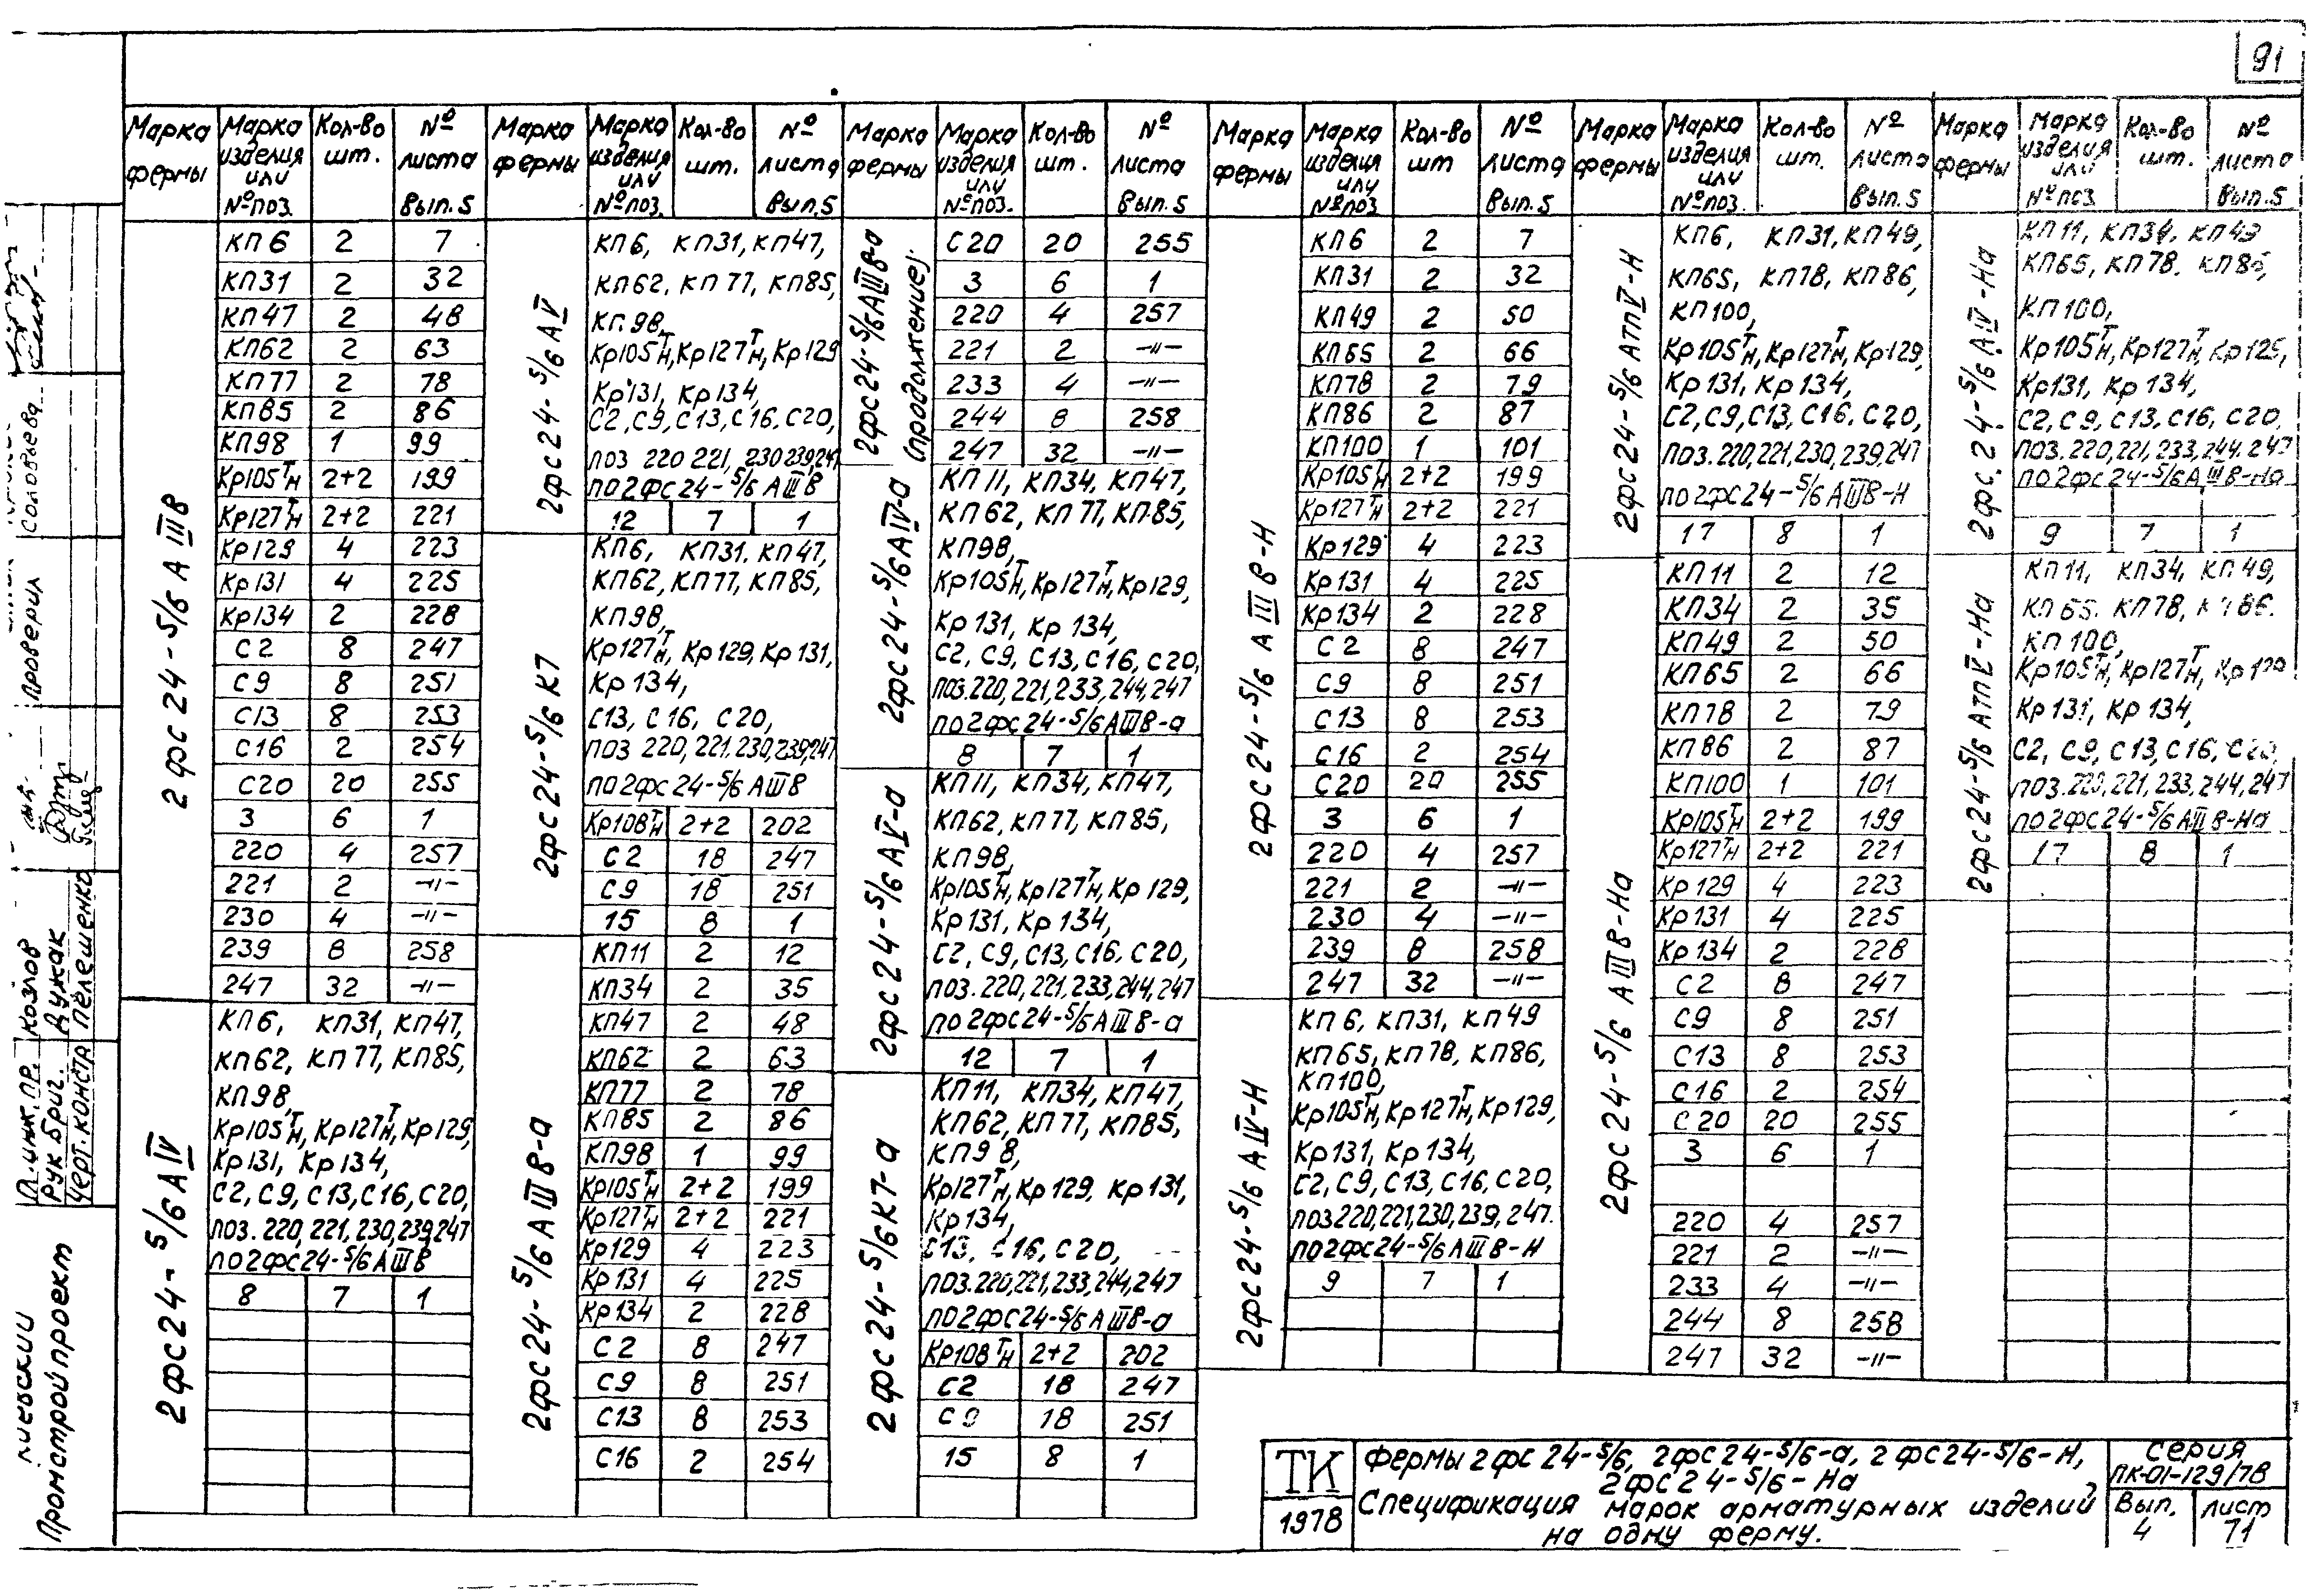 91
Марка фермы | Марка изделия или № поз. | Кол-во шт. | № листа Вып.5
2фс24-5/6 АIIIв
КП6 2 7
КП31 2 32
КП47 2 48
КП62 2 63
КП77 2 78
КП85 2 86
КП98 1 99
Кр105Т/Н 2+2 199
Кр127Т/Н 2+2 221
Кр129 4 223
Кр131 4 225
Кр134 2 228
С2 8 247
С9 8 251
С13 8 253
С16 2 254
С20 20 255
3 6 1
220 4 257
221 2 -"-
230 4 -"-
239 8 258
247 32 -"-
2фс24-5/6 АIV
КП6, КП31, КП47,
КП62, КП77, КП85,
КП98,
Кр105Т/Н, Кр127Т/Н, Кр129,
Кр131, Кр134,
С2, С9, С13, С16, С20,
поз. 220, 221, 230, 239, 247
по 2фс24-5/6 АIIIв
8 7 1
Марка фермы | Марка изделия или № поз. | Кол-во шт. | № листа Вып.5
2фс24-5/6 АV
КП6, КП31, КП47,
КП62, КП77, КП85,
КП98,
Кр105Т/Н, Кр127Т/Н, Кр129
Кр131, Кр134,
С2, С9, С13, С16. С20,
поз 220 221, 230 239, 247
по 2фс24-5/6 АIIIв
12 7 1
2фс24-5/6 К7
КП6, КП31. КП47,
КП62, КП77, КП85,
КП98,
Кр127Т/Н, Кр129, Кр131,
Кр134,
С13, С16, С20,
поз 220, 221. 230, 239, 247
по 2фс24-5/6 АIIIв
Кр108Т/Н 2+2 202
С2 18 247
С9 18 251
15 8 1
2фс24-5/6 АIIIв-а
КП11 2 12
КП34 2 35
КП47 2 48
КП62 2 63
КП77 2 78
КП85 2 86
КП98 1 99
Кр105Т/Н 2+2 199
Кр127Т/Н 2+2 221
Кр129 4 223
Кр131 4 225
Кр134 2 228
С2 8 247
С9 8 251
С13 8 253
С16 2 254
Марка фермы | Марка изделия или № поз. | Кол-во шт. | № листа Вып.5
2фс24-5/6 АIIIв-а (продолжение)
С20 20 255
3 6 1
220 4 257
221 2 -"-
233 4 -"-
244 8 258
247 32 -"-
2фс24-5/6 АIV-а
КП11, КП34, КП47,
КП62, КП77, КП85,
КП98,
Кр105Т/Н, Кр127Т/Н, Кр129,
Кр131, Кр134,
С2, С9, С13, С16, С20,
поз. 220, 221, 233, 244, 247
по 2фс24-5/6 АIIIв-а
8 7 1
2фс24-5/6 АV-а
КП11, КП34, КП47,
КП62, КП77, КП85,
КП98,
Кр105Т/Н, Кр127Т/Н, Кр129,
Кр131, Кр134,
С2, С9, С13, С16. С20,
поз. 220, 221, 233, 244, 247
по 2фс24-5/6 АIIIв-а
12 7 1
2фс24-5/6 К7-а
КП11, КП34, КП47,
КП62, КП77, КП85,
КП98,
Кр127Т/Н, Кр129, Кр131,
Кр134,
С13, С16, С20,
поз. 220, 221, 233, 244, 247
по 2фс24-5/6 АIIIв-а
Кр108Т/Н 2+2 202
С2 18 247
С9 18 251
15 8 1
Марка фермы | Марка изделия или № поз | Кол-во шт | № листа Вып.5
2фс24-5/6 АIIIв-Н
КП6 2 7
КП31 2 32
КП49 2 50
КП65 2 66
КП78 2 79
КП86 2 87
КП100 1 101
Кр105Т/Н 2+2 199
Кр127Т/Н 2+2 221
Кр129 4 223
Кр131 4 225
Кр134 2 228
С2 8 247
С9 8 251
С13 8 253
С16 2 254
С20 20 255
3 6 1
220 4 257
221 2 -"-
230 4 -"-
239 8 258
247 32 -"-
2фс24-5/6 АIV-Н
КП6, КП31, КП49
КП65, КП78, КП86,
КП100,
Кр105Т/Н, Кр127Т/Н, Кр129,
Кр131, Кр134,
С2, С9, С13, С16, С20,
поз 220, 221, 230, 239, 247.
по 2фс24-5/6 АIIIв-Н
9 7 1
Марка фермы | Марка изделия или № поз. | Кол-во шт. | № листа Вып.5
2фс24-5/6 АтпV-Н
КП6, КП31, КП49,
КП65, КП78, КП86,
КП100,
Кр105Т/Н, Кр127Т/Н, Кр129,
Кр131, Кр134,
С2, С9, С13, С16. С20,
поз. 220, 221, 230, 239, 247
по 2фс24-5/6 АIIIв-Н
17 8 1
2фс24-5/6 АIIIв-На
КП11 2 12
КП34 2 35
КП49 2 50
КП65 2 66
КП78 2 79
КП86 2 87
КП100 1 101
Кр105Т/Н 2+2 199
Кр127Т/Н 2+2 221
Кр129 4 223
Кр131 4 225
Кр134 2 228
С2 8 247
С9 8 251
С13 8 253
С16 2 254
С20 20 255
3 6 1
220 4 257
221 2 -"-
233 4 -"-
244 8 258
247 32 -"-
Марка фермы | Марка изделия или № поз | Кол-во шт. | № листа Вып.5
2фс24-5/6 АIV-На
КП11, КП34, КП49
КП65, КП78. КП86,
КП100,
Кр105Т/Н, Кр127Т/Н, Кр129,
Кр131, Кр134,
С2, С9, С13, С16, С20,
поз. 220, 221, 233, 244. 247
по 2фс24-5/6 АIIIв-На
9 7 1
2фс24-5/6 АтпV-На
КП11, КП34, КП49,
КП65. КП78, КП86.
КП100,
Кр105Т/Н, Кр127Т/Н, Кр129
Кр131, Кр134,
С2, С9, С13, С16, С20,
поз. 220, 221, 233, 244, 247
по 2фс24-5/6 АIIIв-На
17 8 1
ТК
1978
Фермы 2фс24-5/6, 2фс24-5/6-а, 2фс24-5/6-Н,
2фс24-5/6-На
Спецификация марок арматурных изделий
на одну ферму.
Серия
ПК-01-129/78
Вып. 4
Лист 71
Проверил Соловьева
Гл. инж. пр. Козлов
Рук. бриг. Дужак
Черт. констр Пелешенко
Киевский
Промстройпроект